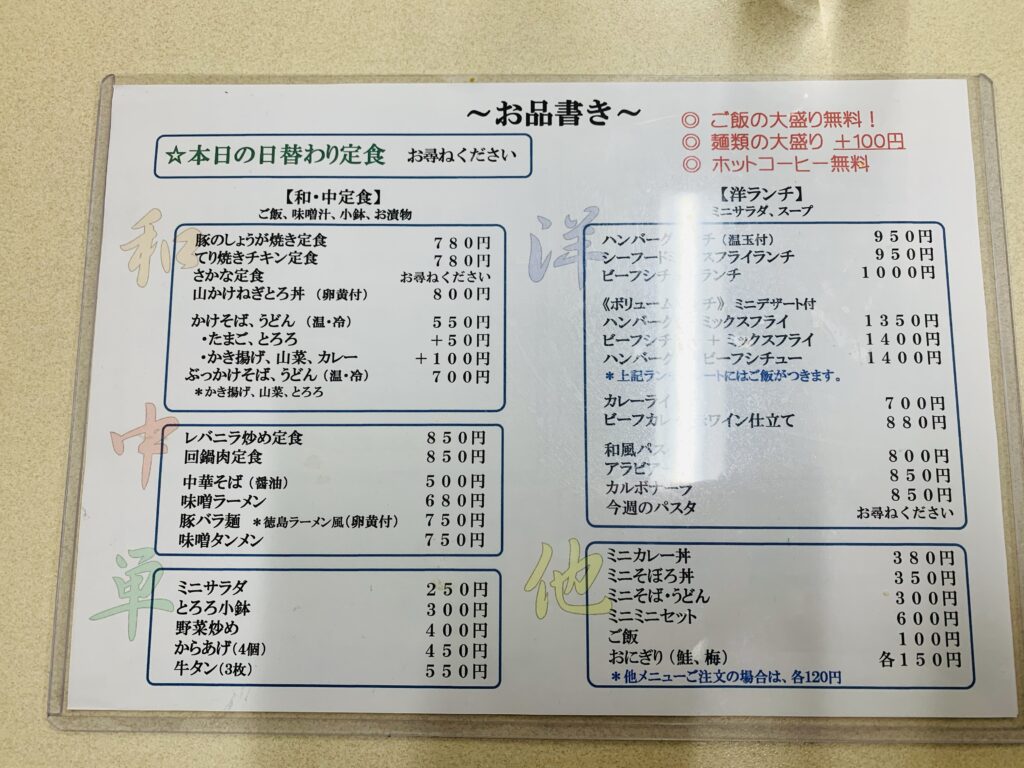 ～お品書き～
◎ ご飯の大盛り無料！
◎ 麺類の大盛り ＋100円
◎ ホットコーヒー無料
☆本日の日替わり定食 お尋ねください
【和・中定食】
ご飯、味噌汁、小鉢、お漬物
和
豚のしょうが焼き定食 ７８０円
てり焼きチキン定食 ７８０円
さかな定食 お尋ねください
山かけねぎとろ丼 （卵黄付） ８００円
かけそば、うどん （温・冷） ５５０円
・たまご、とろろ ＋５０円
・かき揚げ、山菜、カレー ＋１００円
ぶっかけそば、うどん（温・冷） ７００円
＊かき揚げ、山菜、とろろ
中
レバニラ炒め定食 ８５０円
回鍋肉定食 ８５０円
中華そば（醤油） ５００円
味噌ラーメン ６８０円
豚バラ麺 ＊徳島ラーメン風（卵黄付） ７５０円
味噌タンメン ７５０円
単
ミニサラダ ２５０円
とろろ小鉢 ３００円
野菜炒め ４００円
からあげ（4個） ４５０円
牛タン（3枚） ５５０円
【洋ランチ】
ミニサラダ、スープ
洋
ハンバーグ チ（温玉付） ９５０円
シーフード スフライランチ ９５０円
ビーフシチ ランチ １０００円
《ボリューム チ》 ミニデザート付
ハンバーグ ミックスフライ １３５０円
ビーフシチ ＋ ミックスフライ １４００円
ハンバーグ ビーフシチュー １４００円
＊上記ラン ートにはご飯がつきます。
カレーライ ７００円
ビーフカレ ワイン仕立て ８８０円
和風パス ８００円
アラビア ８５０円
カルボナーラ ８５０円
今週のパスタ お尋ねください
他
ミニカレー丼 ３８０円
ミニそぼろ丼 ３５０円
ミニそば・うどん ３００円
ミニミニセット ６００円
ご飯 １００円
おにぎり（鮭、梅） 各１５０円
＊他メニューご注文の場合は、各120円